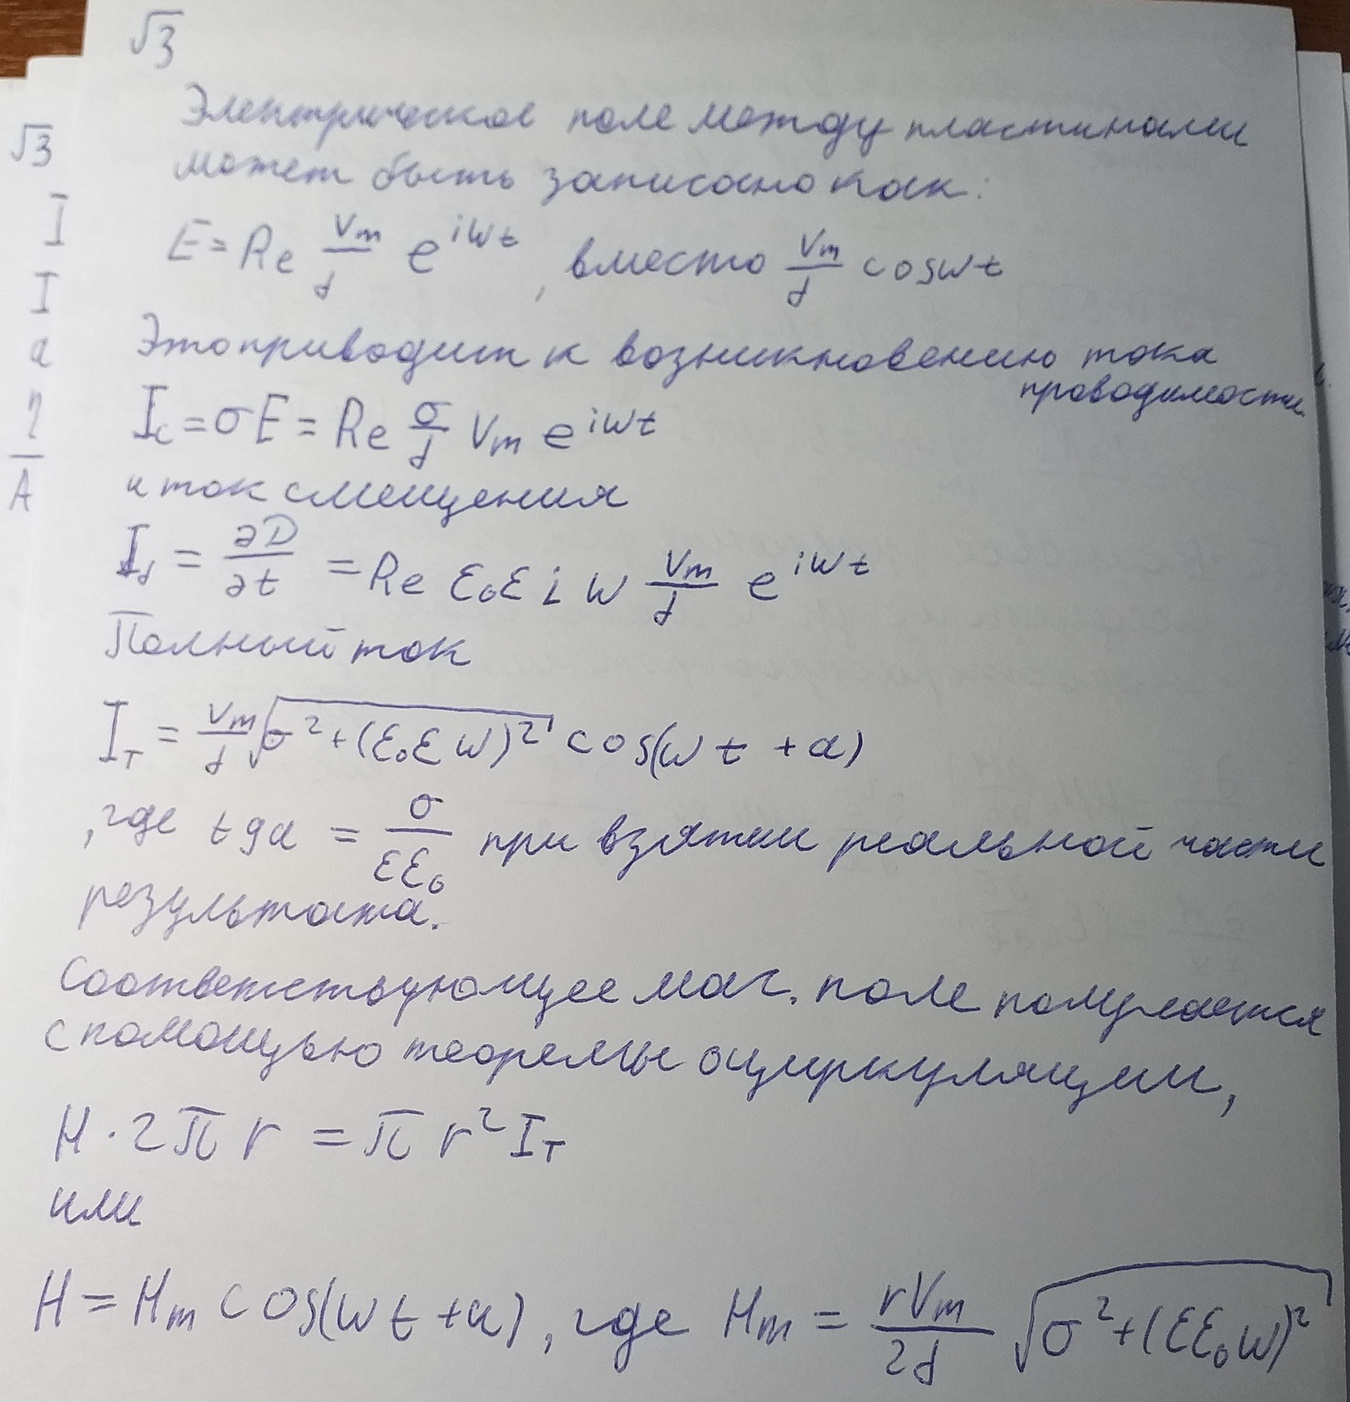 √3
Электрическое поле между пластинами
может быть записано как:
E = Re Vm/d e^{iwt}, вместо Vm/d coswt
Это приводит к возникновению тока
проводимости
I_c = σE = Re σ/d Vm e^{iwt}
и ток смещения
I_d = ∂D/∂t = Re ε₀ε i w Vm/d e^{iwt}
Полный ток
I_T = Vm/d √(σ² + (ε₀εw)²) cos(wt + α)
, где tgα = σ/εε₀ при взятии реальной части
результата.
Соответствующее маг. поле получается
с помощью теоремы о циркуляции,
H · 2π r = π r² I_T
или
H = Hm cos(wt + α), где Hm = rVm/2d √(σ² + (εε₀w)²)
√3
I
I
а
η
A